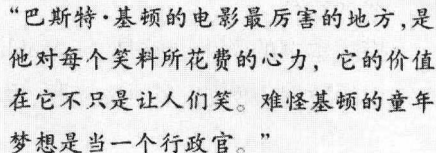 “巴斯特·基顿的电影最厉害的地方,是
他对每个笑料所花费的心力，它的价值
在它不只是让人们笑。难怪基顿的童年
梦想是当一个行政官。”